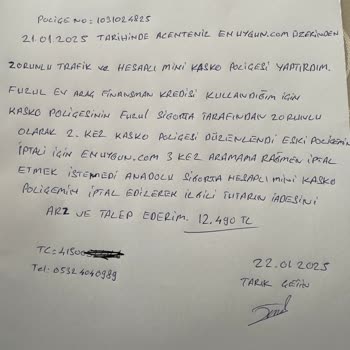 POLİÇE NO: 1031024825
21.01.2025 TARİHİNDE ACENTENİZ ENUYGUN.COM ÜZERİNDEN
ZORUNLU TRAFİK ve HESAPLI MİNİ KASKO POLİÇESİ YAPTIRDIM.
FUZUL EV ARAÇ FİNANSMAN KREDİSİ KULLANDIĞIM İÇİN
KASKO POLİÇESİNİN FUZUL SİGORTA TARAFINDAN ZORUNLU
OLARAK 2. KEZ KASKO POLİÇESİ DÜZENLENDİ ESKİ POLİÇEMİN
İPTALİ İÇİN ENUYGUN.COM 3 KEZ ARAMAMA RAĞMEN İPTAL
ETMEK İSTEMEDİ ANADOLU SİGORTA HESAPLI MİNİ KASKO
POLİÇEMİN İPTAL EDİLEREK İLGİLİ TUTARIN İADESİNİ
ARZ VE TALEP EDERİM. 12.490 TL
TC: 41500
Tel: 0532 4040989
22.01.2025
TARIK ÇETİN